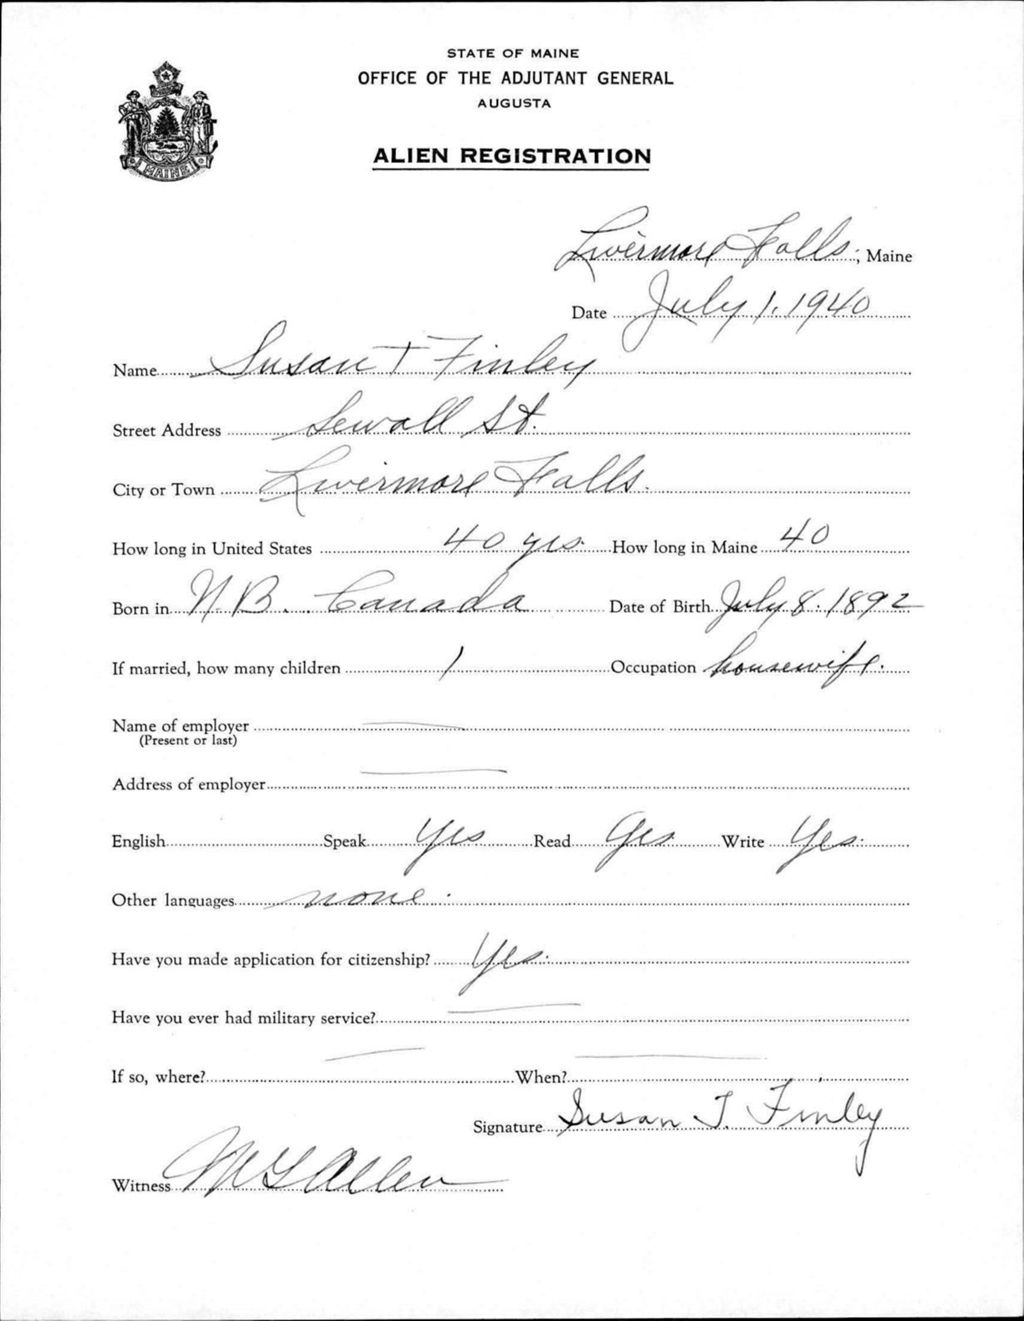 STATE OF MAINE
OFFICE OF THE ADJUTANT GENERAL
AUGUSTA
ALIEN REGISTRATION
MAINE
Livermore Falls, Maine
Date July 1, 1940
Name Susan T Finley
Street Address Sewall St.
City or Town Livermore Falls.
How long in United States 40 yrs. How long in Maine 40
Born in N.B. Canada Date of Birth July 8. 1892
If married, how many children 1 Occupation housewife.
Name of employer
(Present or last)
Address of employer
English Speak Yes Read Yes Write Yes.
Other languages none.
Have you made application for citizenship? Yes.
Have you ever had military service?
If so, where? When?
Signature Susan T. Finley
Witness Allen